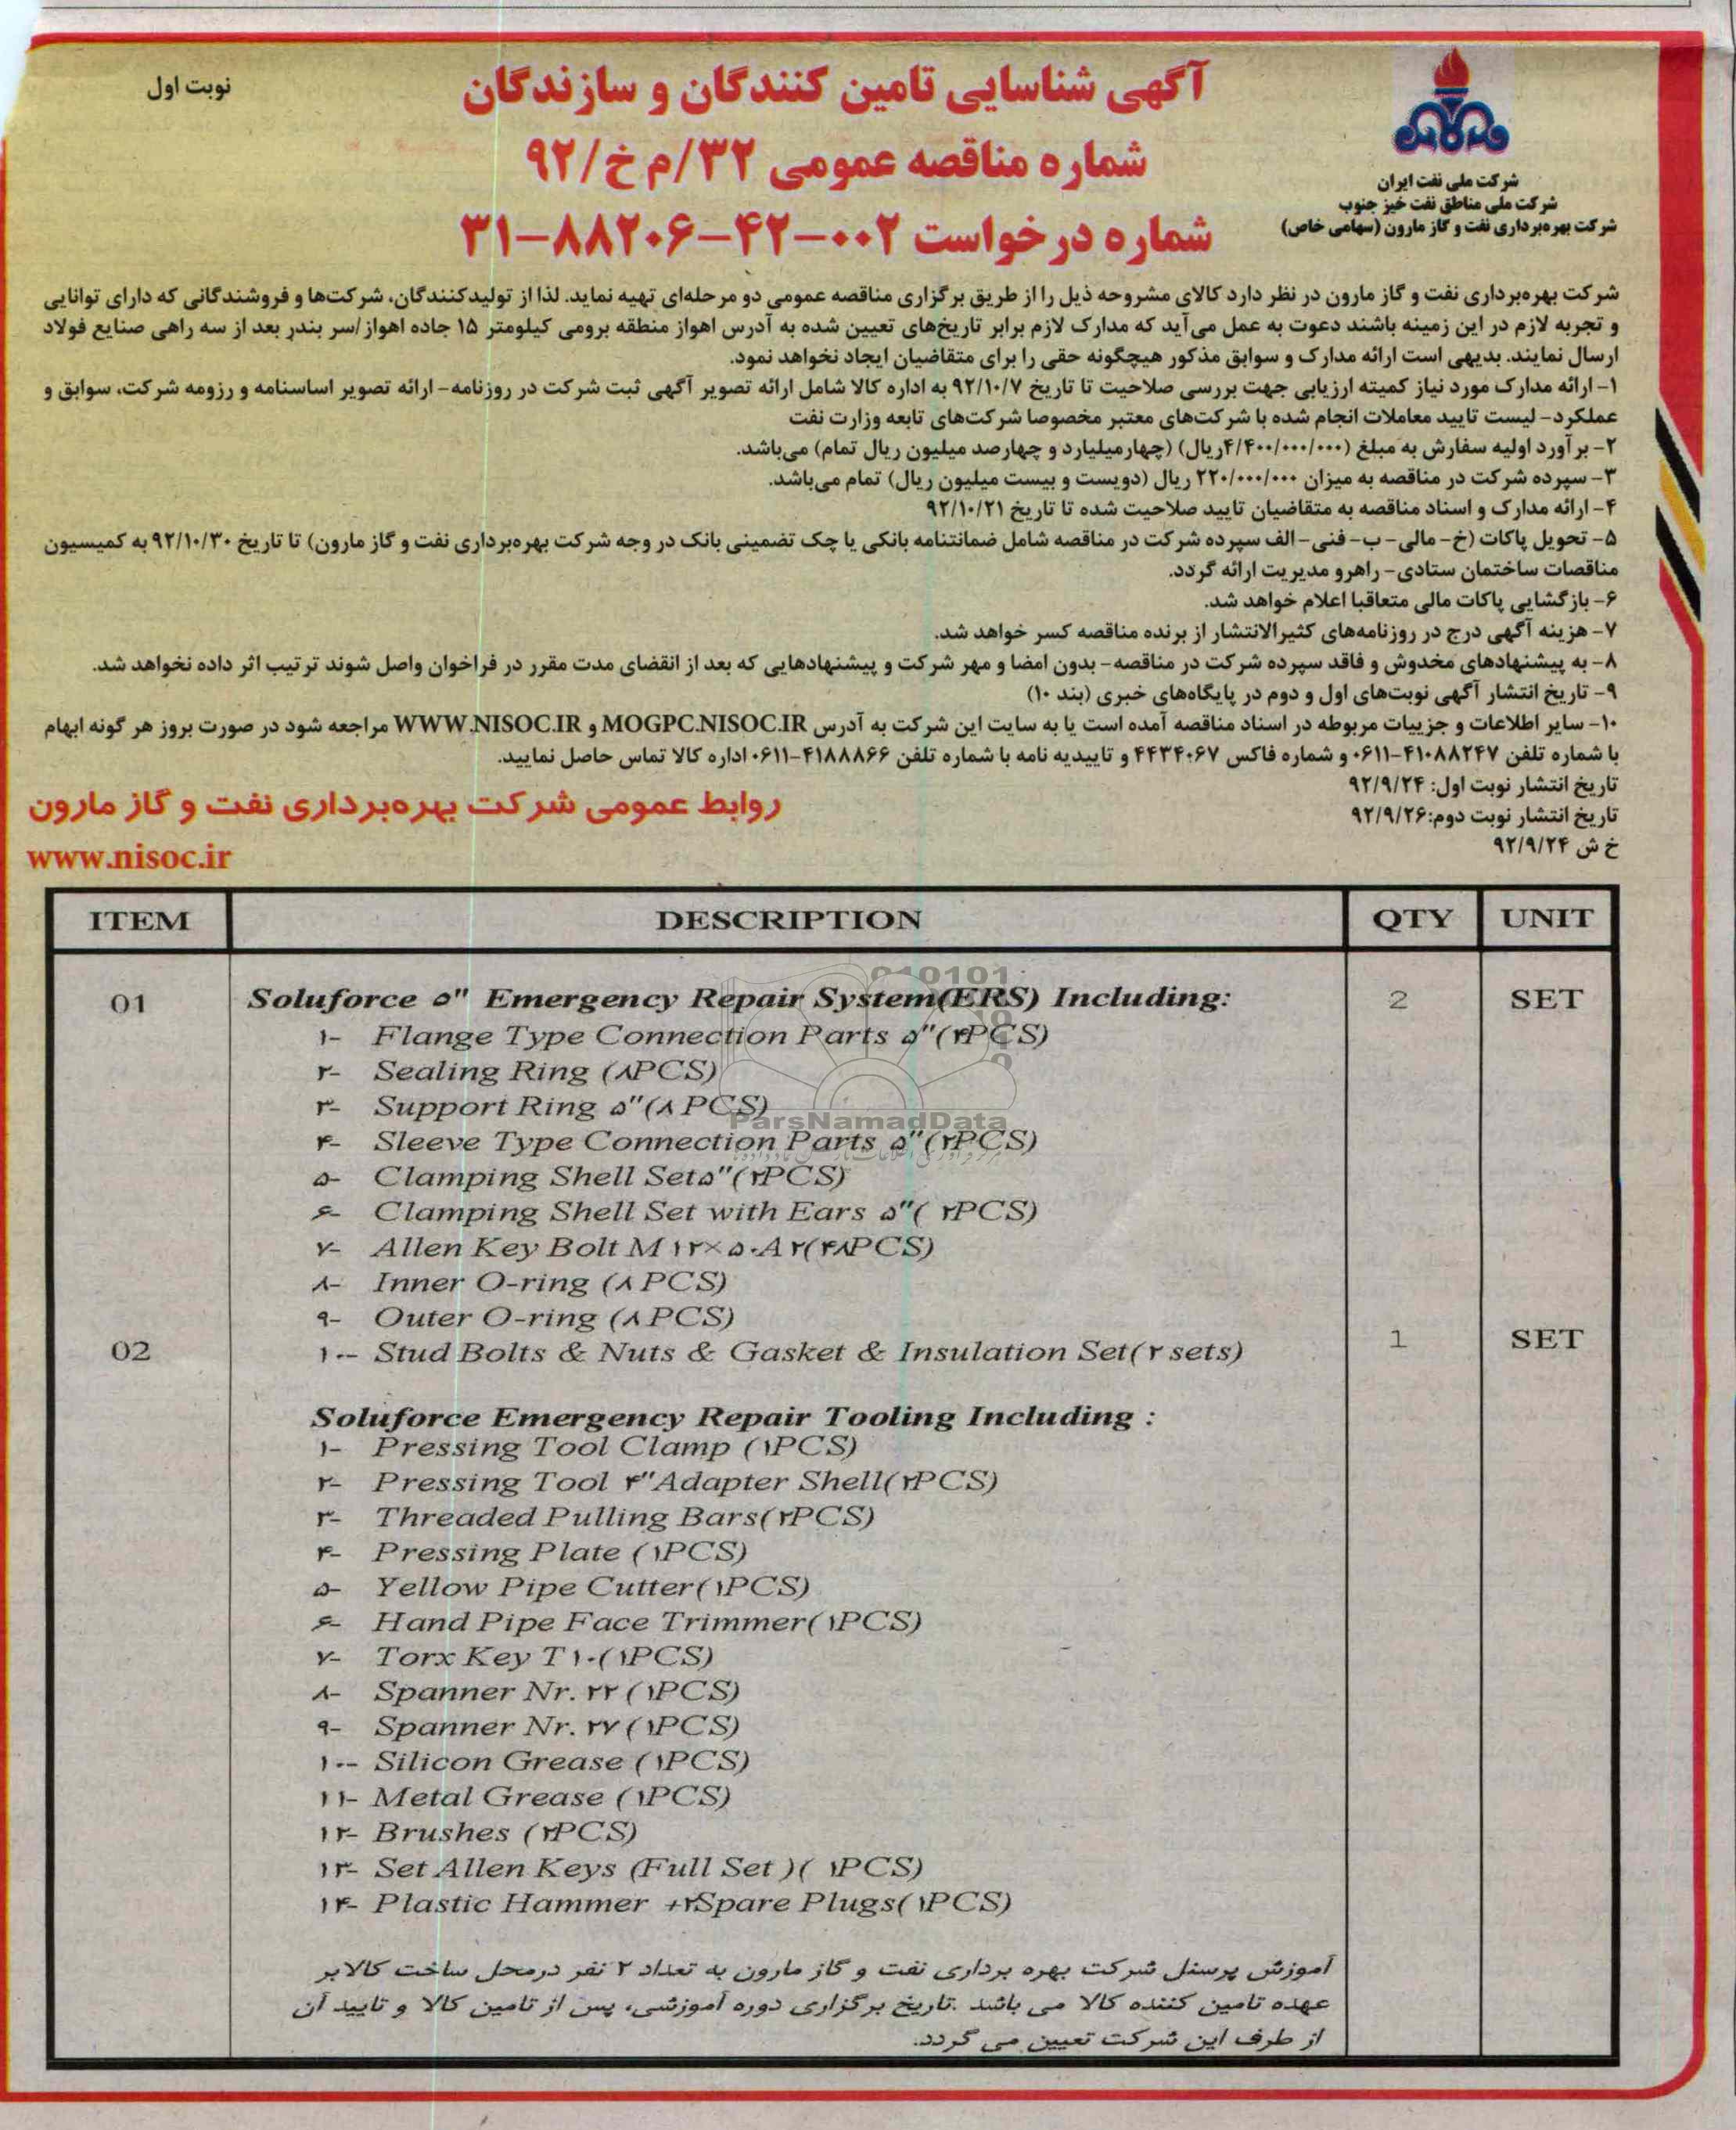 نوبت اول
آگهی شناسایی تامین کنندگان و سازندگان
شماره مناقصه عمومی ۳۲/م خ/۹۲
شماره درخواست ۰۰۲-۴۲-۸۸۲۰۶-۳۱
شرکت ملی نفت ایران
شرکت ملی مناطق نفت خیز جنوب
شرکت بهره‌برداری نفت و گاز مارون (سهامی خاص)
شرکت بهره‌برداری نفت و گاز مارون در نظر دارد کالای مشروحه ذیل را از طریق برگزاری مناقصه عمومی دو مرحله‌ای تهیه نماید. لذا از تولیدکنندگان، شرکت‌ها و فروشندگانی که دارای توانایی
و تجربه لازم در این زمینه باشند دعوت به عمل می‌آید که مدارک لازم برابر تاریخ‌های تعیین شده به آدرس اهواز منطقه برومی کیلومتر ۱۵ جاده اهواز/سر بندر بعد از سه راهی صنایع فولاد
ارسال نمایند. بدیهی است ارائه مدارک و سوابق مذکور هیچگونه حقی را برای متقاضیان ایجاد نخواهد نمود.
۱- ارائه مدارک مورد نیاز کمیته ارزیابی جهت بررسی صلاحیت تا تاریخ ۹۲/۱۰/۷ به اداره کالا شامل ارائه تصویر آگهی ثبت شرکت در روزنامه- ارائه تصویر اساسنامه و رزومه شرکت، سوابق و
عملکرد- لیست تایید معاملات انجام شده با شرکت‌های معتبر مخصوصا شرکت‌های تابعه وزارت نفت
۲- برآورد اولیه سفارش به مبلغ (۴/۴۰۰/۰۰۰/۰۰۰ریال) (چهارمیلیارد و چهارصد میلیون ریال تمام) می‌باشد.
۳- سپرده شرکت در مناقصه به میزان ۲۲۰/۰۰۰/۰۰۰ ریال (دویست و بیست میلیون ریال) تمام می‌باشد.
۴- ارائه مدارک و اسناد مناقصه به متقاضیان تایید صلاحیت شده تا تاریخ ۹۲/۱۰/۲۱
۵- تحویل پاکات (خ- مالی- ب- فنی- الف سپرده شرکت در مناقصه شامل ضمانتنامه بانکی یا چک تضمینی بانک در وجه شرکت بهره‌برداری نفت و گاز مارون) تا تاریخ ۹۲/۱۰/۳۰ به کمیسیون
مناقصات ساختمان ستادی- راهرو مدیریت ارائه گردد.
۶- بازگشایی پاکات مالی متعاقبا اعلام خواهد شد.
۷- هزینه آگهی درج در روزنامه‌های کثیرالانتشار از برنده مناقصه کسر خواهد شد.
۸- به پیشنهادهای مخدوش و فاقد سپرده شرکت در مناقصه- بدون امضا و مهر شرکت و پیشنهادهایی که بعد از انقضای مدت مقرر در فراخوان واصل شوند ترتیب اثر داده نخواهد شد.
۹- تاریخ انتشار آگهی نوبت‌های اول و دوم در پایگاه‌های خبری (بند ۱۰)
۱۰- سایر اطلاعات و جزییات مربوطه در اسناد مناقصه آمده است یا به سایت این شرکت به آدرس MOGPC.NISOC.IR و WWW.NISOC.IR مراجعه شود در صورت بروز هر گونه ابهام
با شماره تلفن ۴۱۰۸۸۲۴۷-۰۶۱۱ و شماره فاکس ۴۴۳۴۰۶۷ و تاییدیه نامه با شماره تلفن ۴۱۸۸۸۶۶-۰۶۱۱ اداره کالا تماس حاصل نمایید.
تاریخ انتشار نوبت اول: ۹۲/۹/۲۴
تاریخ انتشار نوبت دوم:۹۲/۹/۲۶
خ ش ۹۲/۹/۲۴
روابط عمومی شرکت بهره‌برداری نفت و گاز مارون
www.nisoc.ir
ITEM DESCRIPTION QTY UNIT
01 Soluforce ۵" Emergency Repair System(ERS) Including: 2 SET
۱- Flange Type Connection Parts ۵"(۴PCS)
۲- Sealing Ring (۸PCS)
۳- Support Ring ۵"(۸ PCS)
۴- Sleeve Type Connection Parts ۵"(۲PCS)
۵- Clamping Shell Set۵"(۲PCS)
۶- Clamping Shell Set with Ears ۵"( ۲PCS)
۷- Allen Key Bolt M ۱۲×۵۰A۲(۴۸PCS)
۸- Inner O-ring (۸ PCS)
۹- Outer O-ring (۸ PCS)
02 ۱۰- Stud Bolts & Nuts & Gasket & Insulation Set(۲ sets) 1 SET
Soluforce Emergency Repair Tooling Including :
۱- Pressing Tool Clamp (۱PCS)
۲- Pressing Tool ۴"Adapter Shell(۲PCS)
۳- Threaded Pulling Bars(۲PCS)
۴- Pressing Plate (۱PCS)
۵- Yellow Pipe Cutter(۱PCS)
۶- Hand Pipe Face Trimmer(۱PCS)
۷- Torx Key T۱۰(۱PCS)
۸- Spanner Nr. ۲۲ (۱PCS)
۹- Spanner Nr. ۲۷ (۱PCS)
۱۰- Silicon Grease (۱PCS)
۱۱- Metal Grease (۱PCS)
۱۲- Brushes (۲PCS)
۱۳- Set Allen Keys (Full Set )( ۱PCS)
۱۴- Plastic Hammer +۲Spare Plugs(۱PCS)
آموزش پرسنل شرکت بهره برداری نفت و گاز مارون به تعداد ۲ نفر درمحل ساخت کالابر
عهده تامین کننده کالا می باشد .تاریخ برگزاری دوره آموزشی، پس از تامین کالا و تایید آن
از طرف این شرکت تعیین می گردد.
ParsNamadData